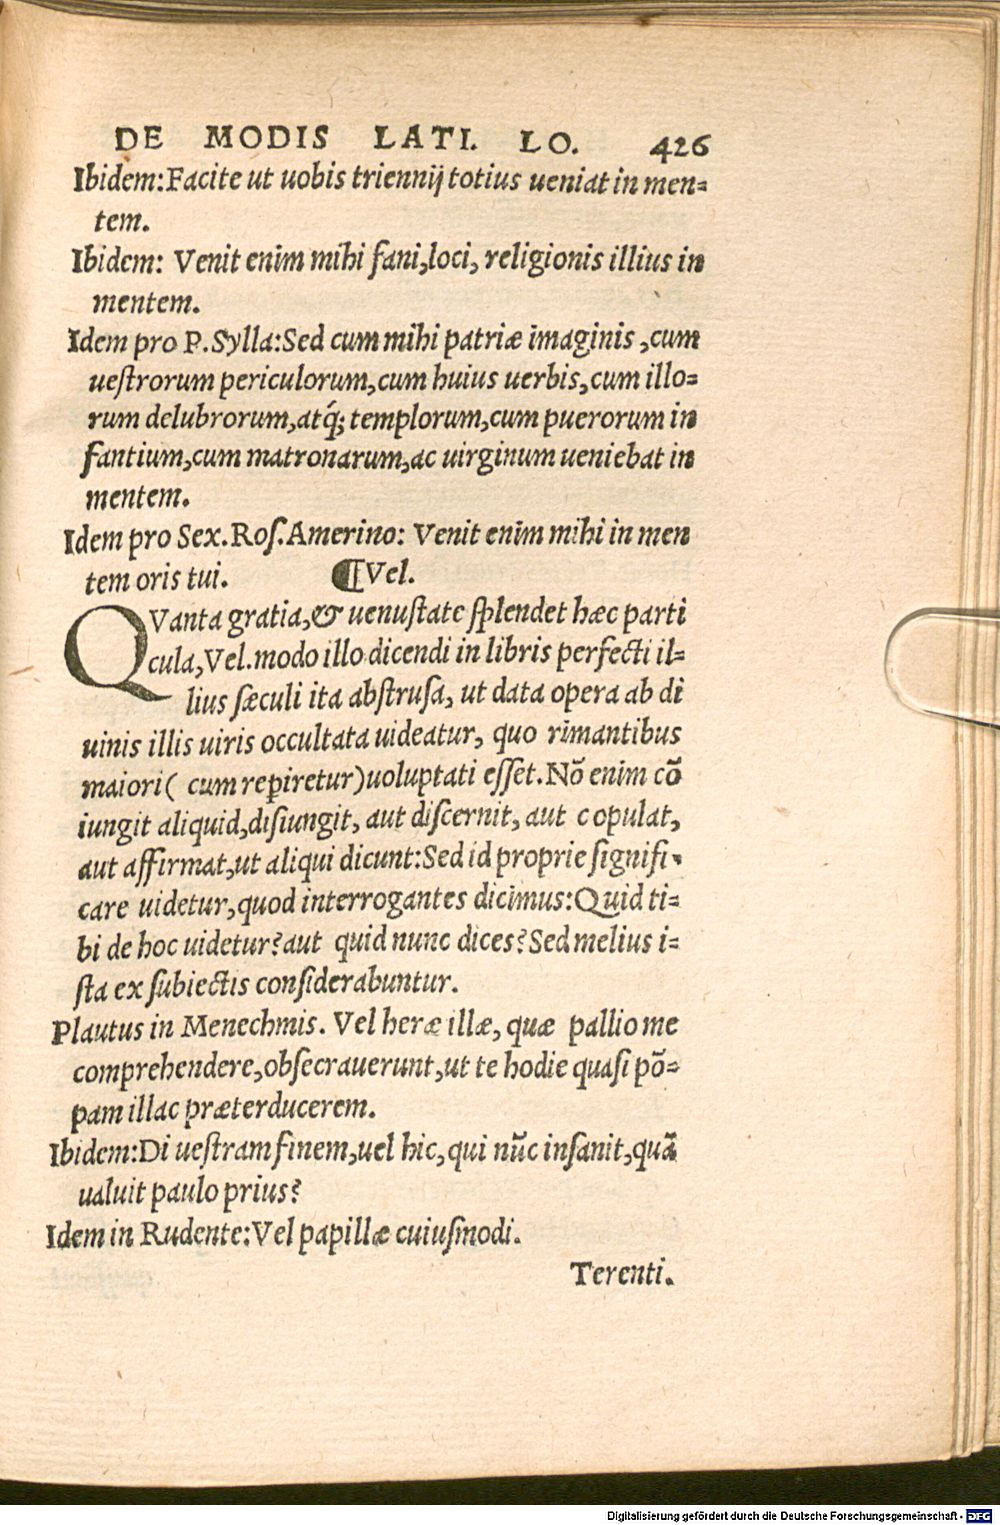 DE MODIS LATI. LO. 426
Ibidem:Facite ut uobis triennij totius ueniat in men=
tem.
Ibidem: Venit enim mihi fani,loci, religionis illius in
mentem.
Idem pro P.Sylla:Sed cum mihi patriæ imaginis ,cum
uestrorum periculorum,cum huius uerbis,cum illo=
rum delubrorum,atq́; templorum,cum puerorum in
fantium,cum matronarum,ac uirginum ueniebat in
mentem.
Idem pro Sex.Roſ.Amerino: Venit enim mihi in men
tem oris tui. ¶Vel.
QVanta gratia,& uenuſtate ſplendet hæc parti
cula,Vel.modo illo dicendi in libris perfecti il=
lius ſæculi ita abſtruſa, ut data opera ab di
uinis illis uiris occultata uideatur, quo rimantibus
maiori( cum reperiretur)uoluptati eſſet.Nō enim cō
iungit aliquid,diſiungit, aut diſcernit, aut copulat,
aut affirmat,ut aliqui dicunt:Sed id proprie ſignifi-
care uidetur,quod interrogantes dicimus:Quid ti=
bi de hoc uidetur?aut quid nunc dices?Sed melius i=
ſta ex ſubiectis conſiderabuntur.
Plautus in Menechmis. Vel heræ illæ, quæ pallio me
comprehendere,obſecrauerunt,ut te hodie quaſi pō=
pam illac præterducerem.
Ibidem:Di ueſtram finem,uel hic,qui nūc inſanit,quā
ualuit paulo prius?
Idem in Rudente:Vel papillæ cuiuſmodi.
Terenti.
Digitalisierung gefördert durch die Deutsche Forschungsgemeinschaft - DFG